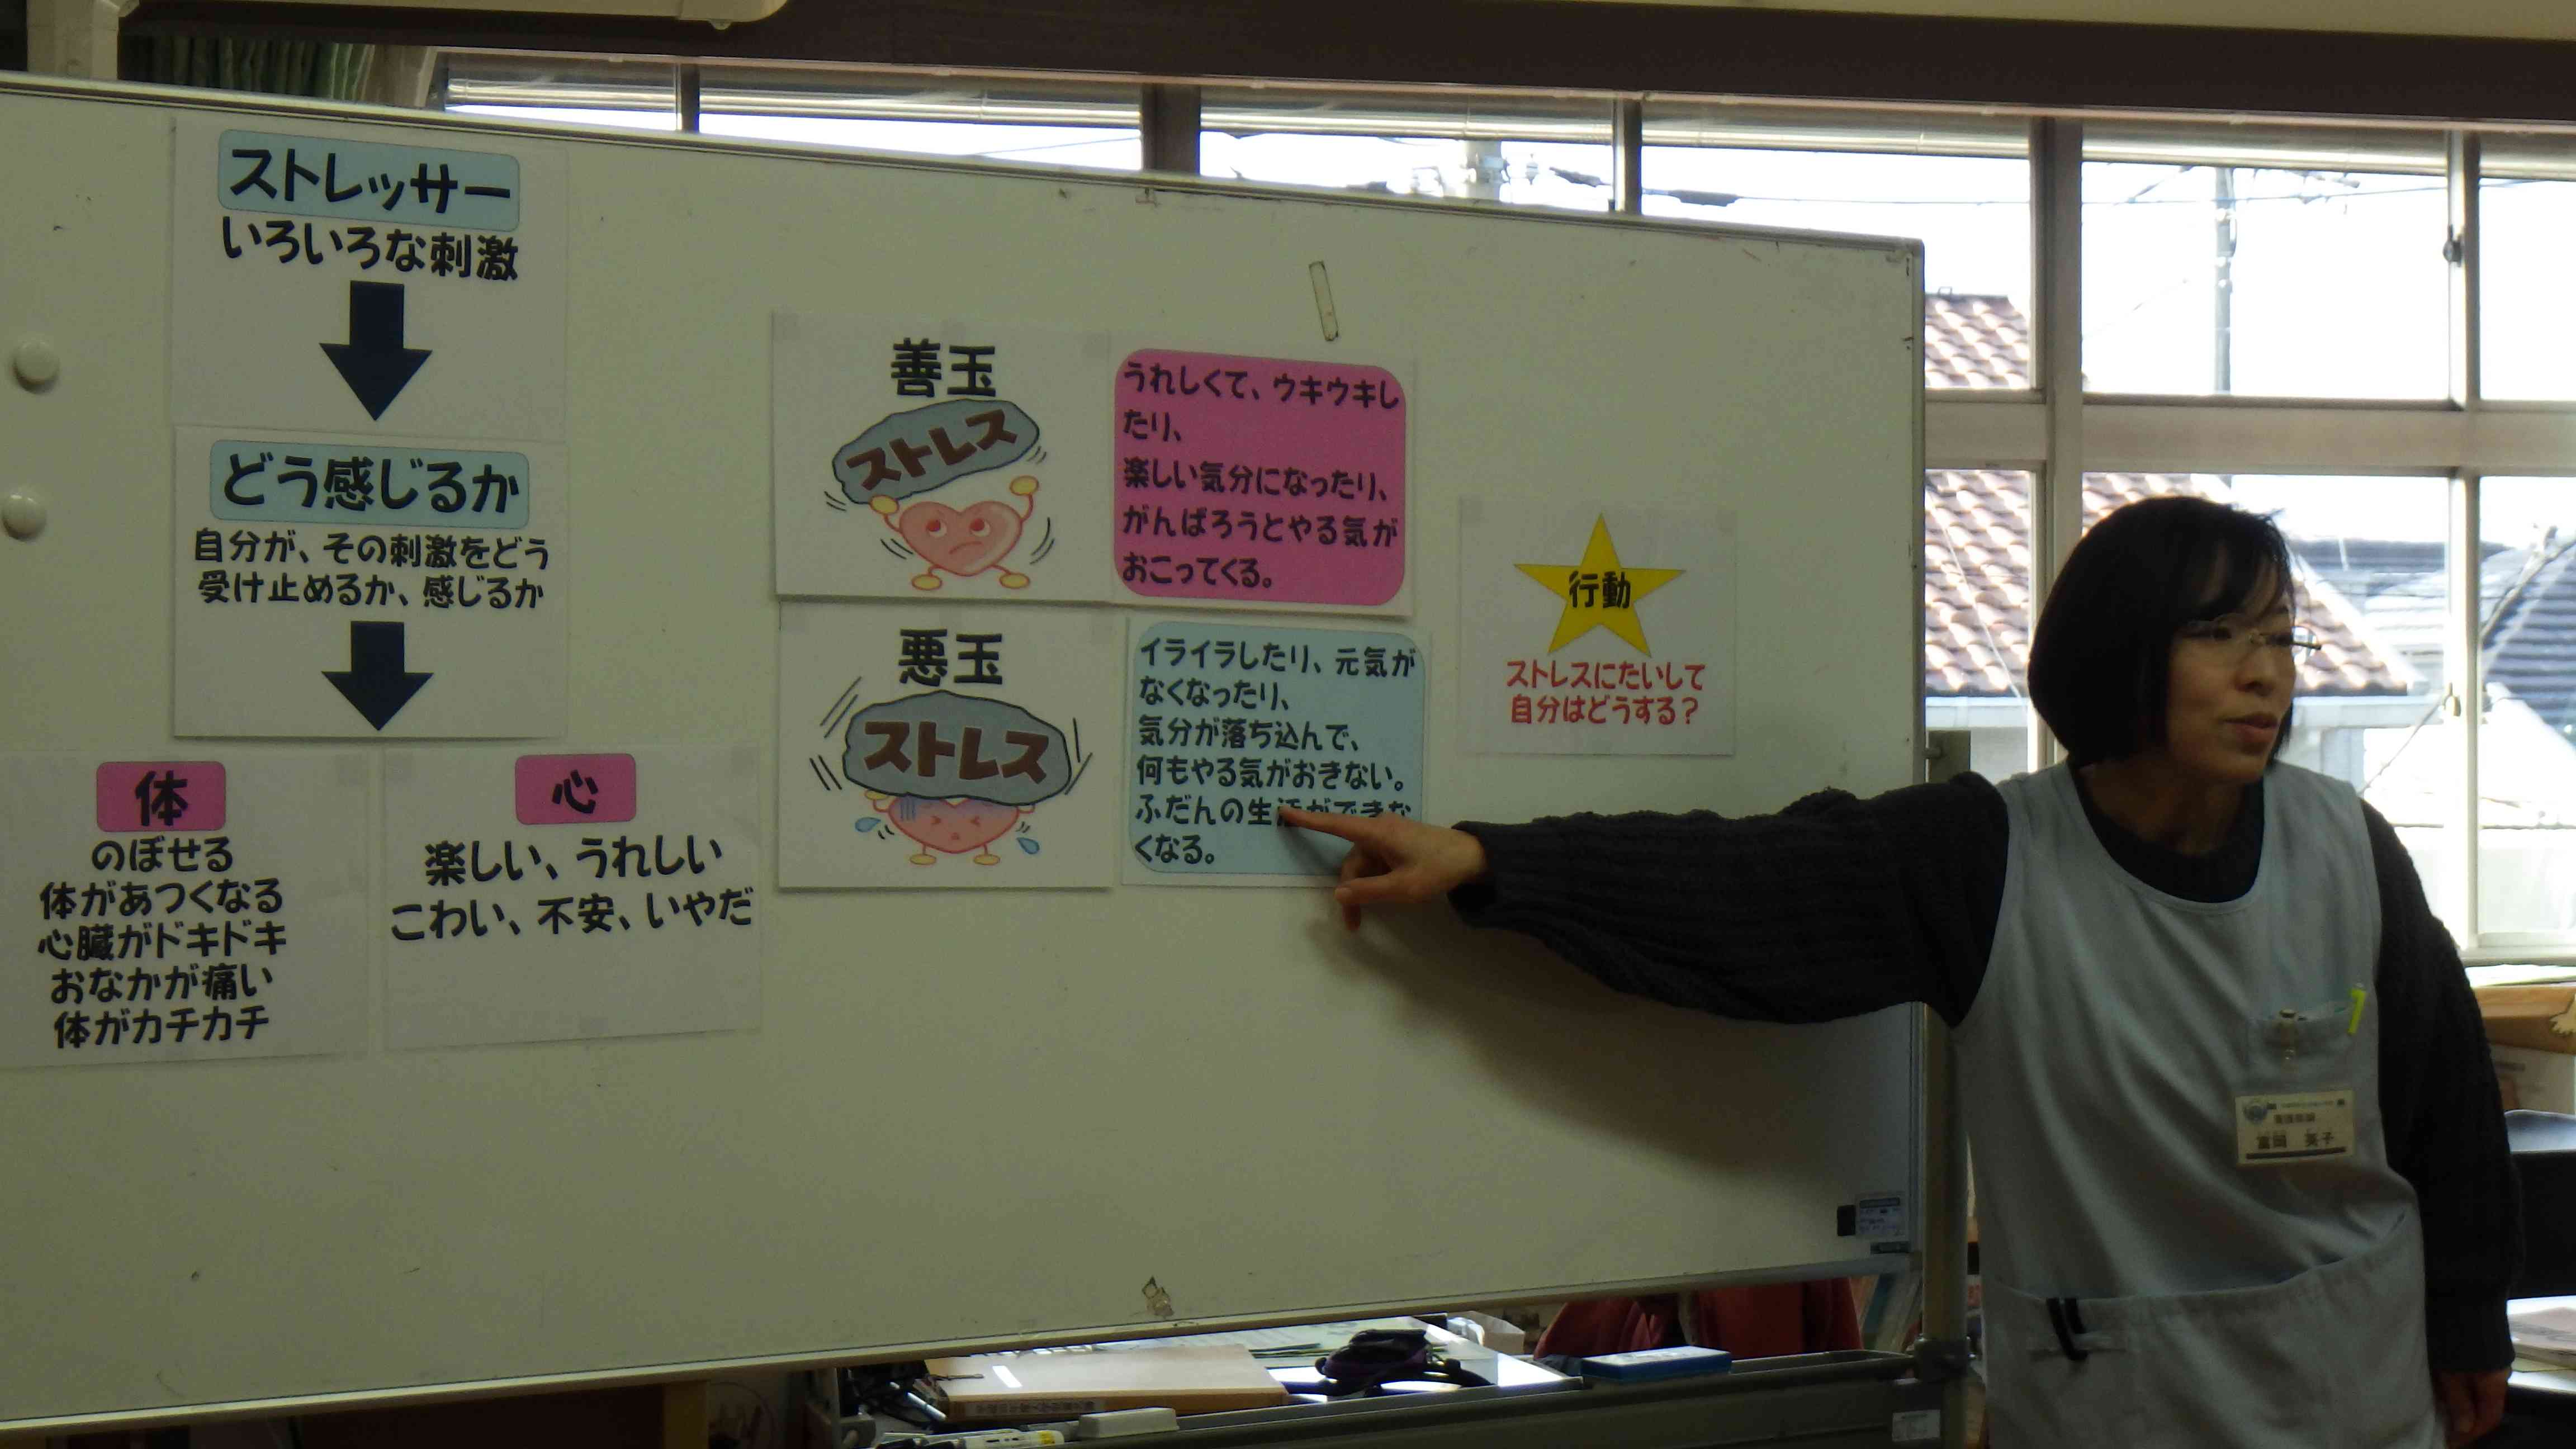 ストレッサー
いろいろな刺激
どう感じるか
自分が、その刺激をどう
受け止めるか、感じるか
体
のぼせる
体があつくなる
心臓がドキドキ
おなかが痛い
体がカチカチ
心
楽しい、うれしい
こわい、不安、いやだ
善玉
ストレス
うれしくて、ウキウキし
たり、
楽しい気分になったり、
がんばろうとやる気が
おこってくる。
悪玉
ストレス
イライラしたり、元気が
なくなったり、
気分が落ち込んで、
何もやる気がおきない。
ふだんの生活ができな
くなる。
行動
ストレスにたいして
自分はどうする？